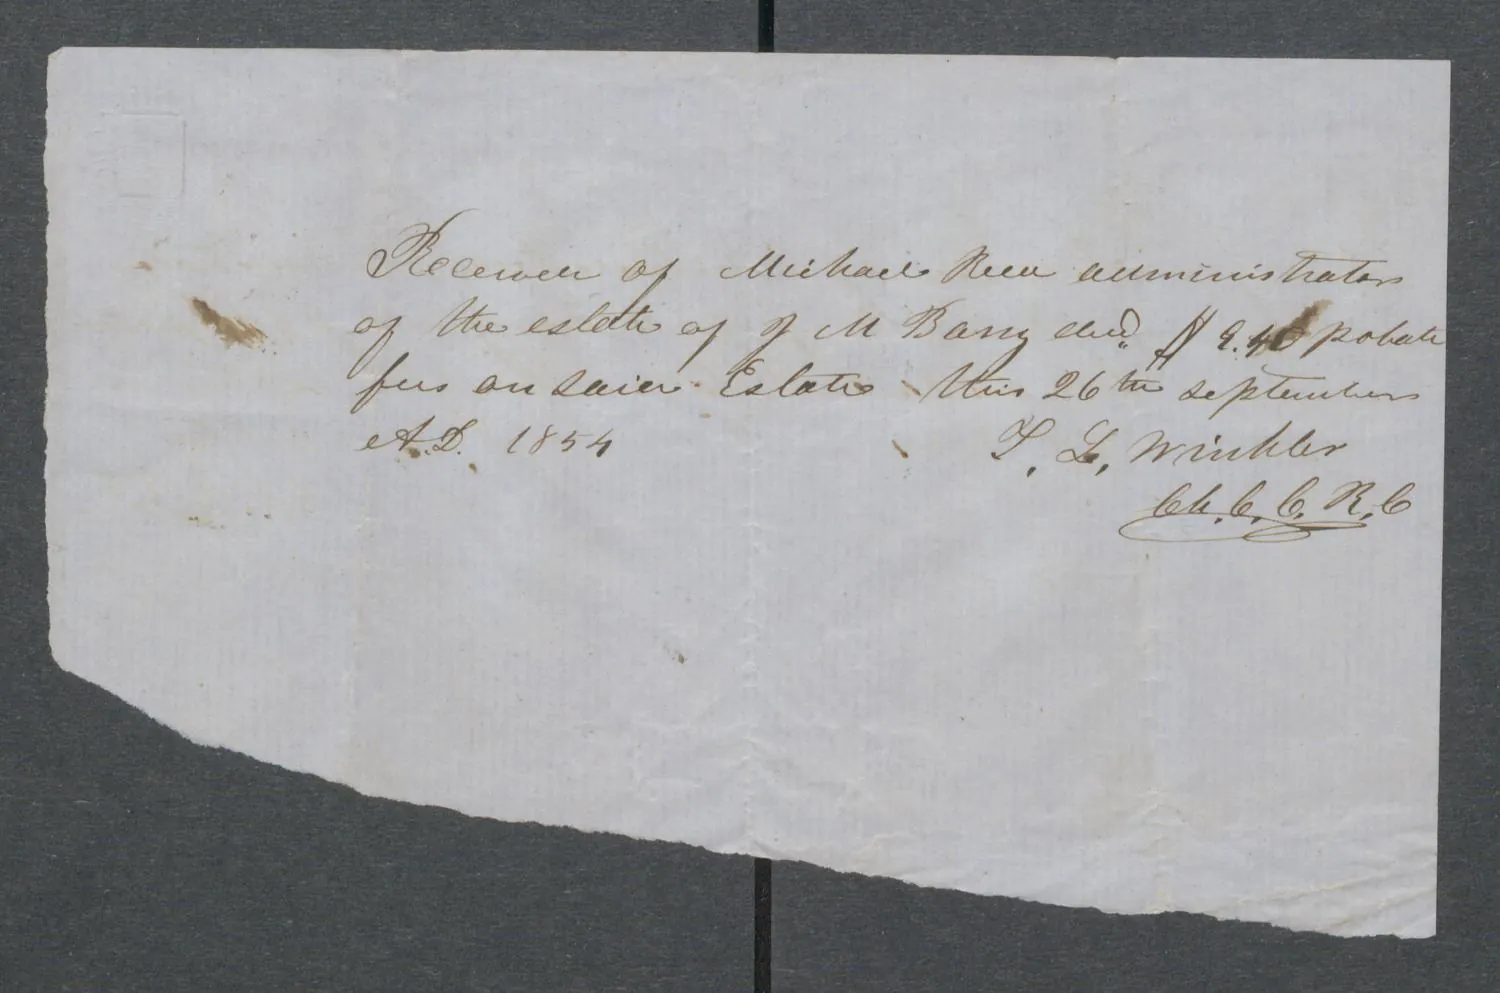 Received of Michael Reed administrator
of the estate of J M Barry decd $ 9.40 pobate
fees on said Estate this 26th september
A.D. 1854 T. L. Winkler
Clk. C. C. R. C